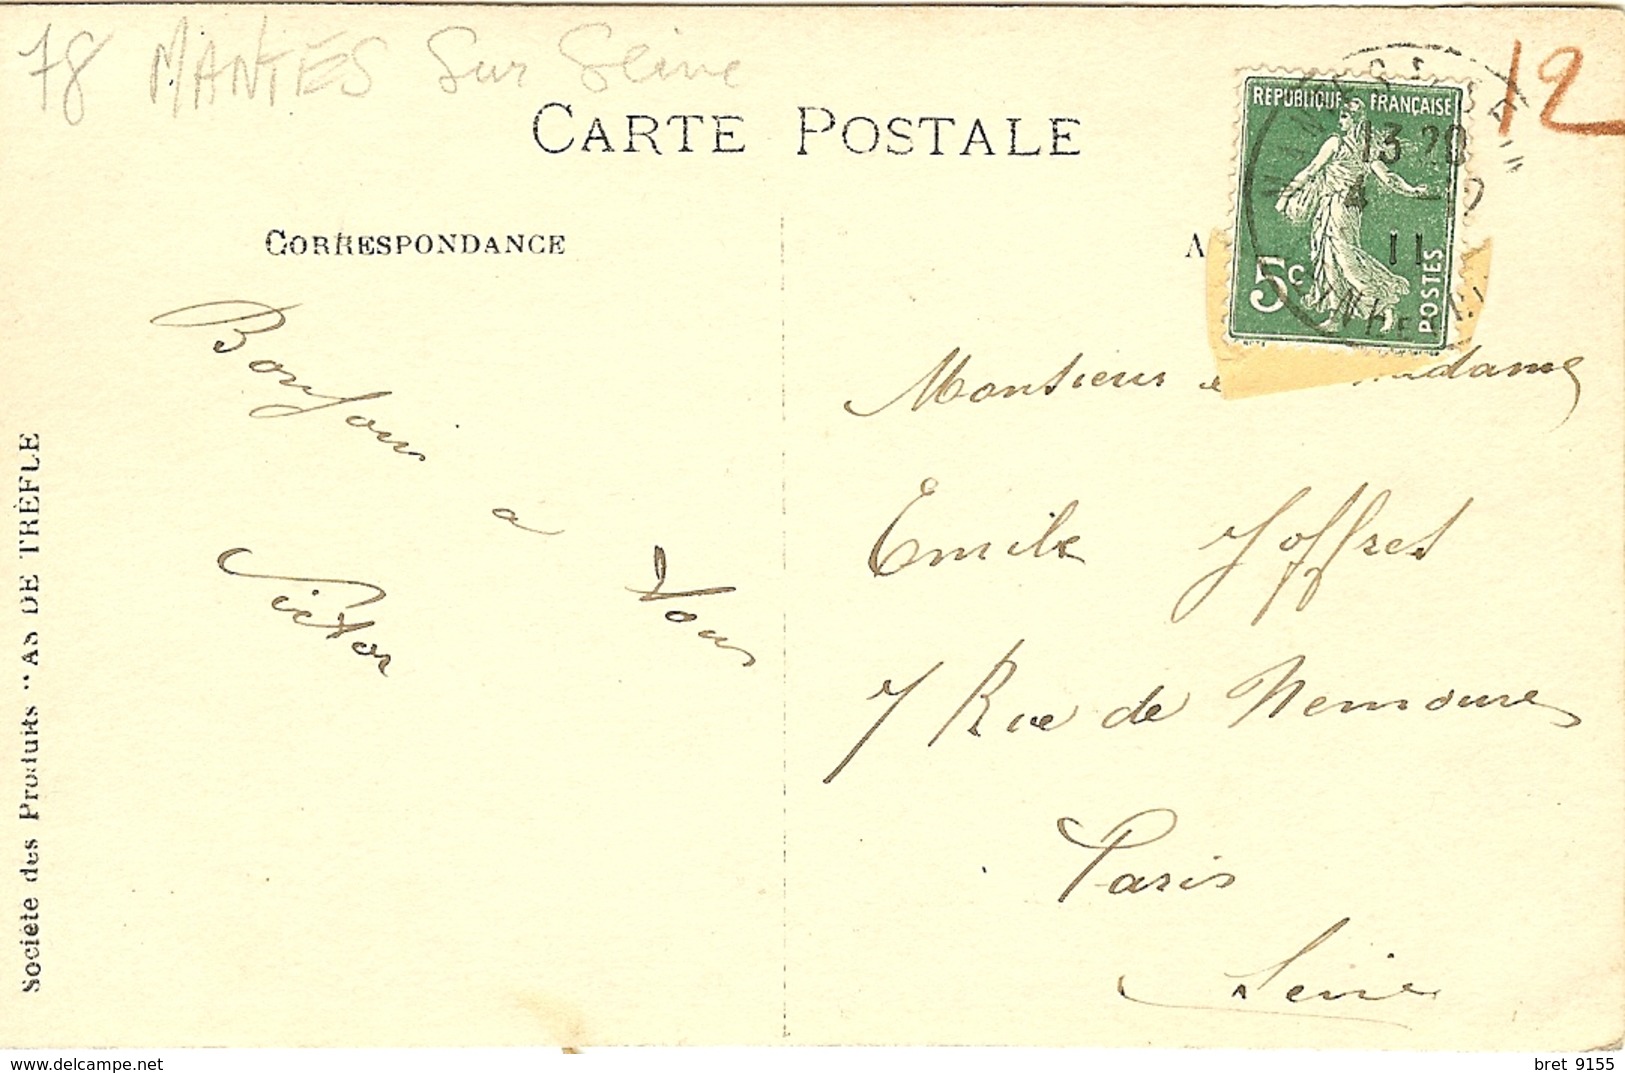 78 MANTES sur Seine
12
CARTE POSTALE
RÉPUBLIQUE FRANÇAISE
13 20
4 -12
11
5c
POSTES
CORRESPONDANCE
A
Bonjour
à
Vous
Victor
Monsieur & Madame
Emile Joffret
7 Rue de Nemours
Paris
Seine
Société des Produits "AS DE TRÈFLE
delcampe.net
bret 9155